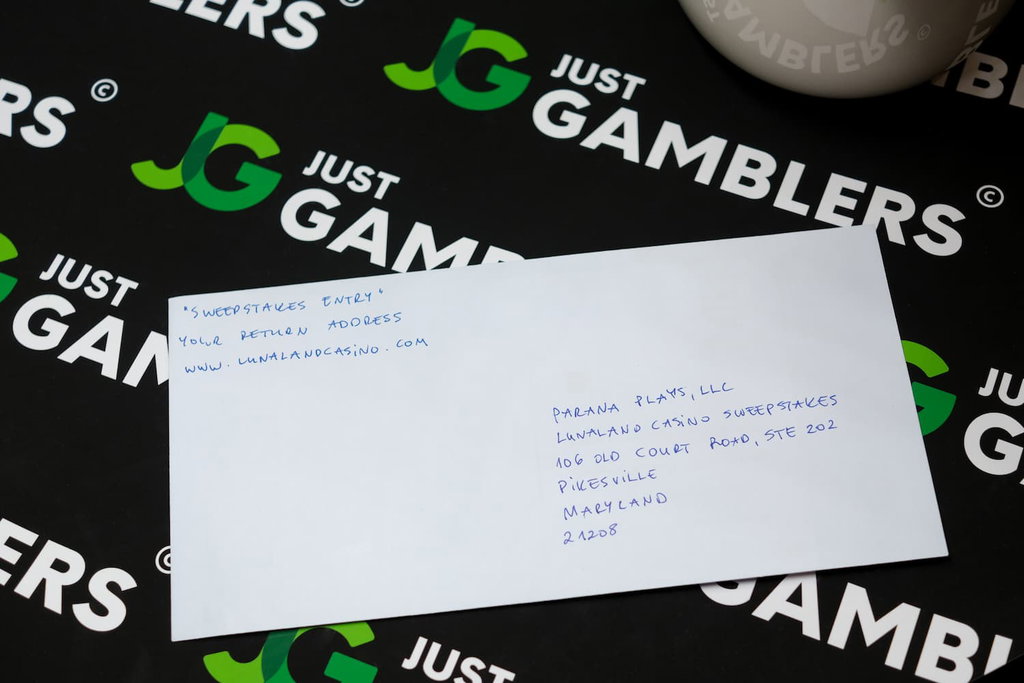 LERS
©
JUST
GAMBLERS
©
RS
©
JUST
GAMB
JUST
GAM
"SWEEPSTAKES ENTRY"
YOUR RETURN ADDRESS
WWW.LUNALANDCASINO.COM
PARANA PLAYS, LLC
LUNALAND CASINO SWEEPSTAKES
106 OLD COURT ROAD, STE 202
PIKESVILLE
MARYLAND
21208
JU
G
ERS
©
GAMBL
JUST